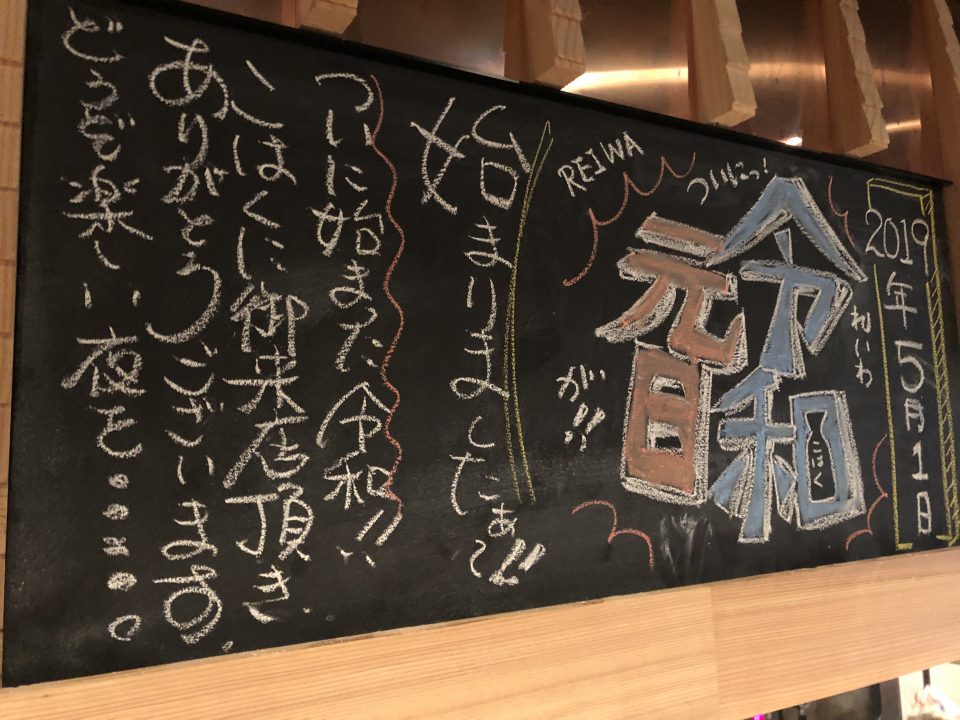 2019年5月1日
れいわ
ついにっ!
令和
こはく
元日
REIWA
が!!
始まりましたぁ〜!!
ついに始まった令和!!
こはくに御来店頂き
ありがとうございます。
どうぞ楽しい夜を。。。。。